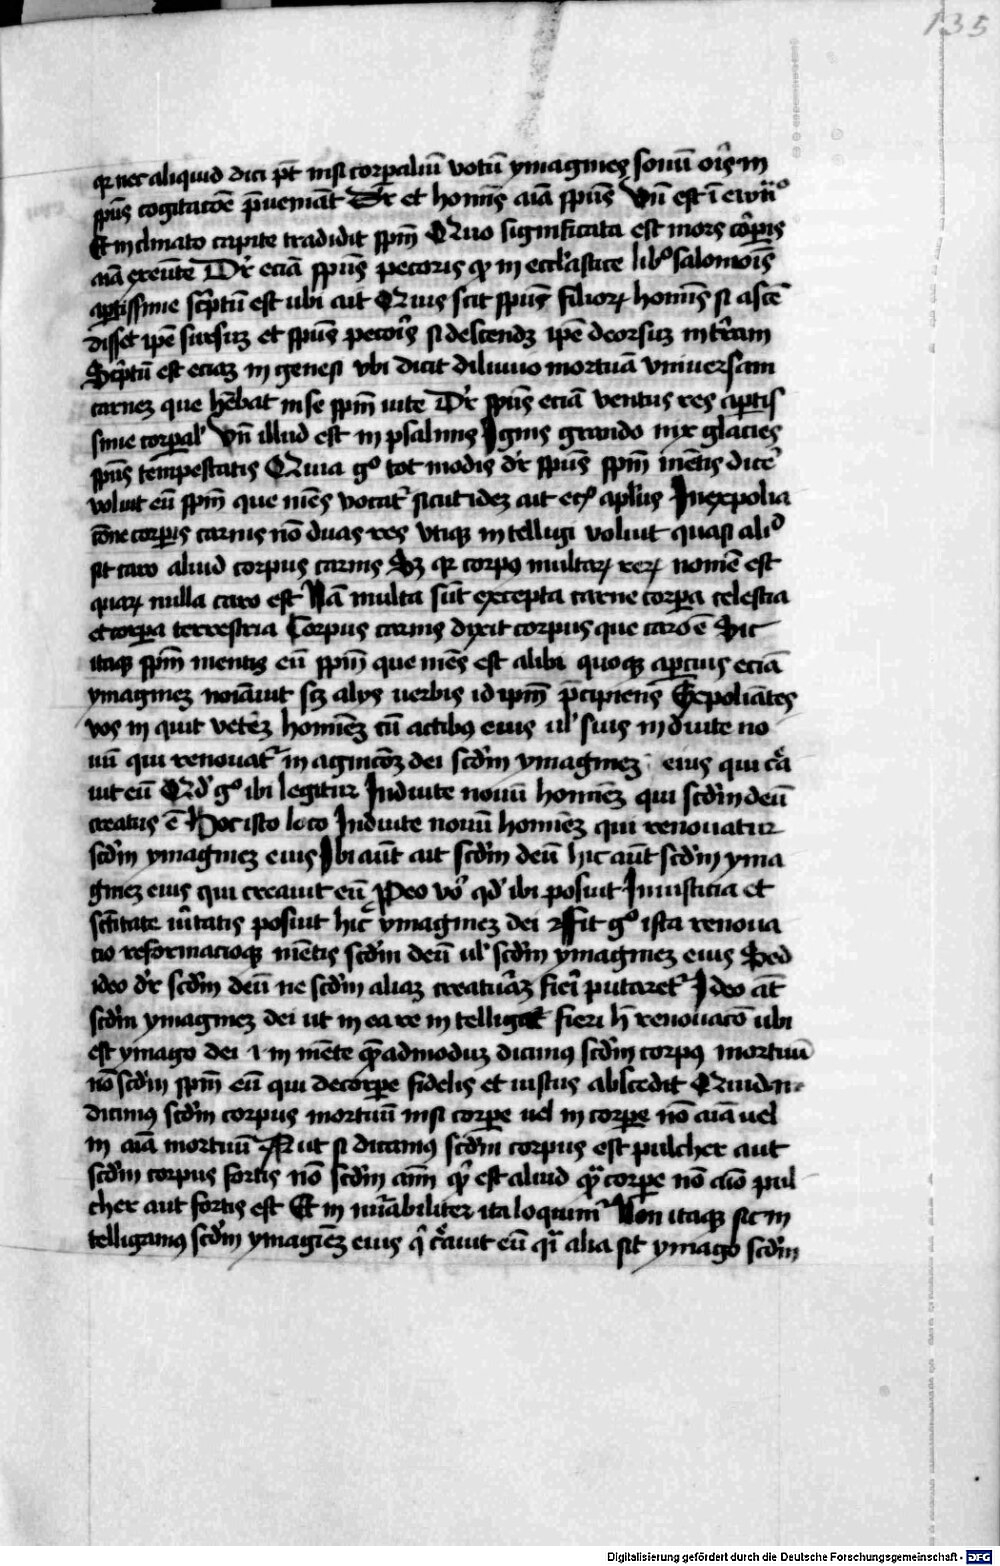 135
qr nec aliquid dici pt̄ nisi corpaliū votū ymagines sonū oīs in
spūs cogitacōē p̄ueniāt Dr̄ et homīs aīa spūs Vn̄ est ī ewn̄o
Et inclinato capite tradidit spm̄ Quo significata est mors corpis
aīa exeūte Dr̄ eciā spūs pecoris qd in eccl'astice libo salomoīs
aptissime scptū est ubi ait Quis scit spūs filioꝝ homīs si ascē
disset ipē sursuꝫ et spūs pecoris si descendꝫ ipē deorsuꝫ in trām
Scptū est eciaꝫ in genesi vbi dicit diluuio mortuā vniuersam
carneꝫ que hēbat in se spm̄ uite Dr̄ spūs eciā ventus res aptis
sime corpal' Vn̄ illud est in psalmis Ignis grando nix glacies
spūs tempestatis Quia go tot modis dr̄ spūs spm̄ mētis dicē
voluit eū spm̄ que mēs vocatr̄ sicut ideꝫ ait apl'us In expolia
cōne corpis carnis nō duas res vtiqꝫ intelligi voluit quasi alid
sit caro aliud corpus carnis Sꝫ qr corpꝰ multaꝝ reꝝ nomē est
quaꝝ nulla caro est Nā multa sūt excepta carne corpa celestia
et corpa terrestria Corpus carnis dixit corpus que caro ē Sic
itaqꝫ spm̄ mentis eū spm̄ que mēs est alibi quoqꝫ apcius eciā
ymagineꝫ noīauit scꝫ alijs uerbis id ipm̄ p̄cipiens Expoliātes
vos in quit veterē homīeꝫ cū actibꝰ eius ul' suis induite no
uū qui renouatr̄ in agnicōꝫ dei scdm̄ ymagineꝫ eius qui crā
uit eū Qd' go ibi legitur Induite nouū homīeꝫ qui scdm̄ deū
creatus ē Hoc isto loco Induite nouū homīeꝫ qui renouatur
scdm̄ ymagineꝫ eius Ibi aūt ait scdm̄ deū hic aūt scdm̄ yma
gineꝫ eius qui creauit eū Pro vo qd' ibi posuit In iusticia et
sctītate ūitatis posuit hic ymagineꝫ dei Fit go ista renoua
cio reformacioqꝫ mētis scdm̄ deū ul' scdm̄ ymagineꝫ eius Sed
ideo dr̄ scdm̄ deū ne scdm̄ aliaꝫ creaturāꝫ fieri putaretr̄ Ideo āt
scdm̄ ymagineꝫ dei ut in ea re intelligat fieri h̄ renouacō ubi
est ymago dei i in mēte quēadmoduꝫ dicimꝰ scdm̄ corpꝰ mortuū
nō scdm̄ spm̄ eū qui de corpe fidelis et iustus abscedit Quid n
dicimꝰ scdm̄ corpus mortuū nisi corpe uel in corpe nō aīa uel
in aīa mortuū Aut si dicamꝰ scdm̄ corpus est pulcher aut
scdm̄ corpus fortis nō scdm̄ aīm qd est aliud quā corpe nō aīo pul
cher aut fortis est Et in nūabiliter ita loquimr̄ Non itaqꝫ sic in
telligamꝰ scdm̄ ymagīeꝫ eius q̄ crāuit eū qī alia sit ymago scdm̄
Digitalisierung gefördert durch die Deutsche Forschungsgemeinschaft - DFG